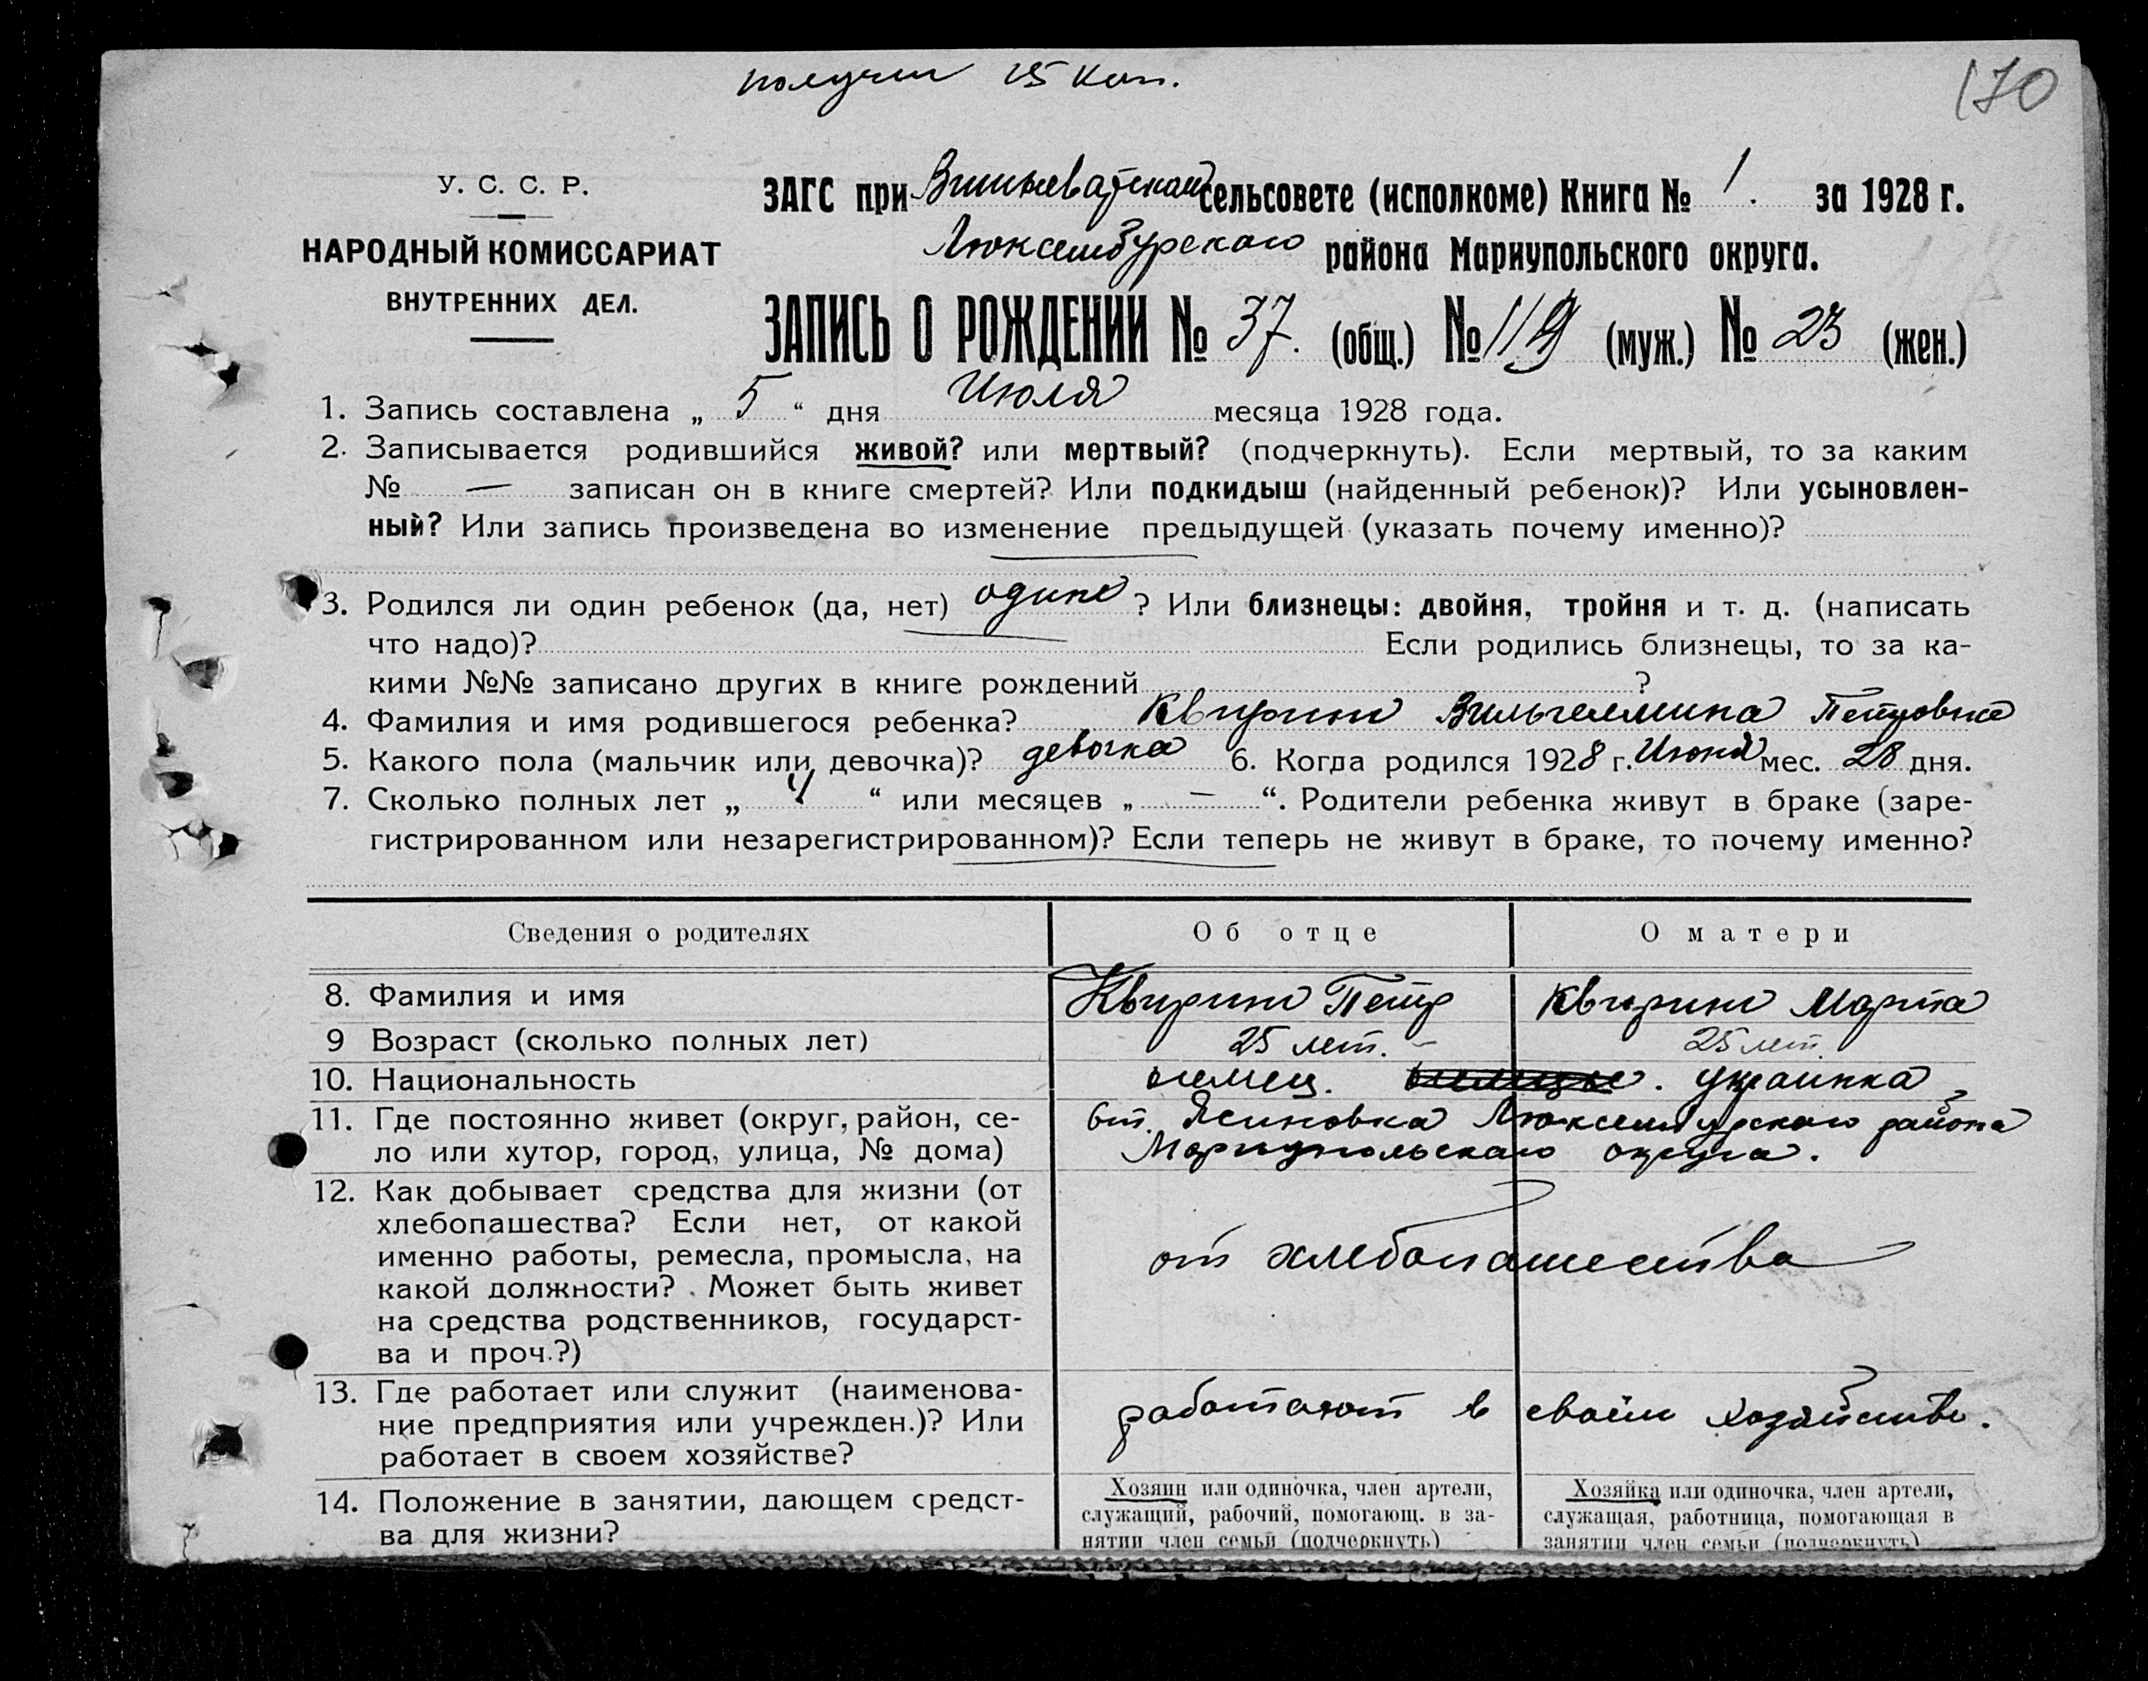 получил 15 коп.
170
У. С. С. Р.
НАРОДНЫЙ КОМИССАРИАТ
ВНУТРЕННИХ ДЕЛ.
ЗАГС при сельсовете (исполкоме) Книга № 1. за 1928 г.
Люксембурского района Мариупольского округа.
ЗАПИСЬ О РОЖДЕНИИ № 37. (общ.) № (муж.) № 23 (жен.)
1. Запись составлена „ 5 “ дня Июля месяца 1928 года.
2. Записывается родившийся живой? или мертвый? (подчеркнуть). Если мертвый, то за каким
№ — записан он в книге смертей? Или подкидыш (найденный ребенок)? Или усыновлен-
ный? Или запись произведена во изменение предыдущей (указать почему именно)?
3. Родился ли один ребенок (да, нет) один ? Или близнецы: двойня, тройня и т. д. (написать
что надо)? Если родились близнецы, то за ка-
кими №№ записано других в книге рождений ?
4. Фамилия и имя родившегося ребенка? Квиринг Вильгелмина Петровна
5. Какого пола (мальчик или девочка)? девочка 6. Когда родился 1928 г. Июня мес. 28 дня.
7. Сколько полных лет „ 4 “ или месяцев „ — “. Родители ребенка живут в браке (заре-
гистрированном или незарегистрированном)? Если теперь не живут в браке, то почему именно?
Сведения о родителях Об отце О матери
8. Фамилия и имя Квиринг Петр Квиринг Марта
9 Возраст (сколько полных лет) 25 лет. 25 лет.
10. Национальность немец. украинка
11. Где постоянно живет (округ, район, се- Ясиновка Люксембурского района
ло или хутор, город, улица, № дома) Мариупольского округа.
12. Как добывает средства для жизни (от
хлебопашества? Если нет, от какой
именно работы, ремесла, промысла, на от хлебопашества
какой должности? Может быть живет
на средства родственников, государст-
ва и проч.?)
13. Где работает или служит (наименова-
ние предприятия или учрежден.)? Или работают в своем хозяйстве.
работает в своем хозяйстве?
14. Положение в занятии, дающем средст-
ва для жизни?
Хозяин или одиночка, член артели,
служащий, рабочий, помогающ. в за-
нятии член семьи (подчеркнуть)
Хозяйка или одиночка, член артели,
служащая, работница, помогающая в
занятии член семьи (подчеркнуть)